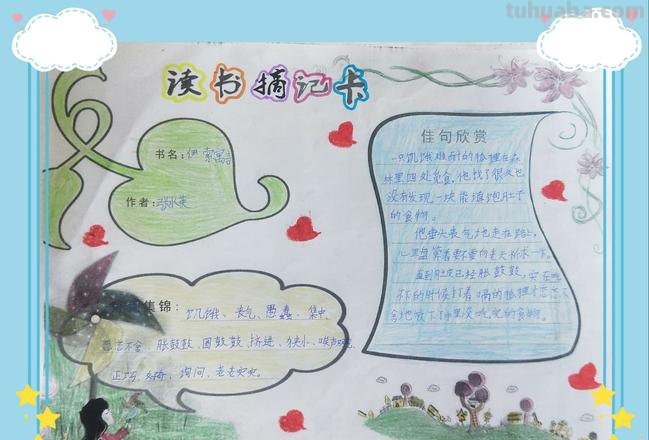 tuhuaba.com
读书摘记卡
书名:伊索寓言
作者:
集锦:
饥饿、丧气、愚蠢、集中、
恋恋不舍、胀鼓鼓、圆鼓鼓、挤进、狭小、
正巧、好奇、询问、老老实实。
佳句欣赏
一只饥饿难耐的狐狸在森
林里四处觅食,他找了很久也
没有发现一块能填饱肚子
的食物。
他垂头丧气地走在路上,
心里盘算着要不要向老天祈求一下。
直到肚皮已经胀鼓鼓,实在
的时候打着嗝的狐狸才恋恋不
舍地放下了手里没吃完的食物。